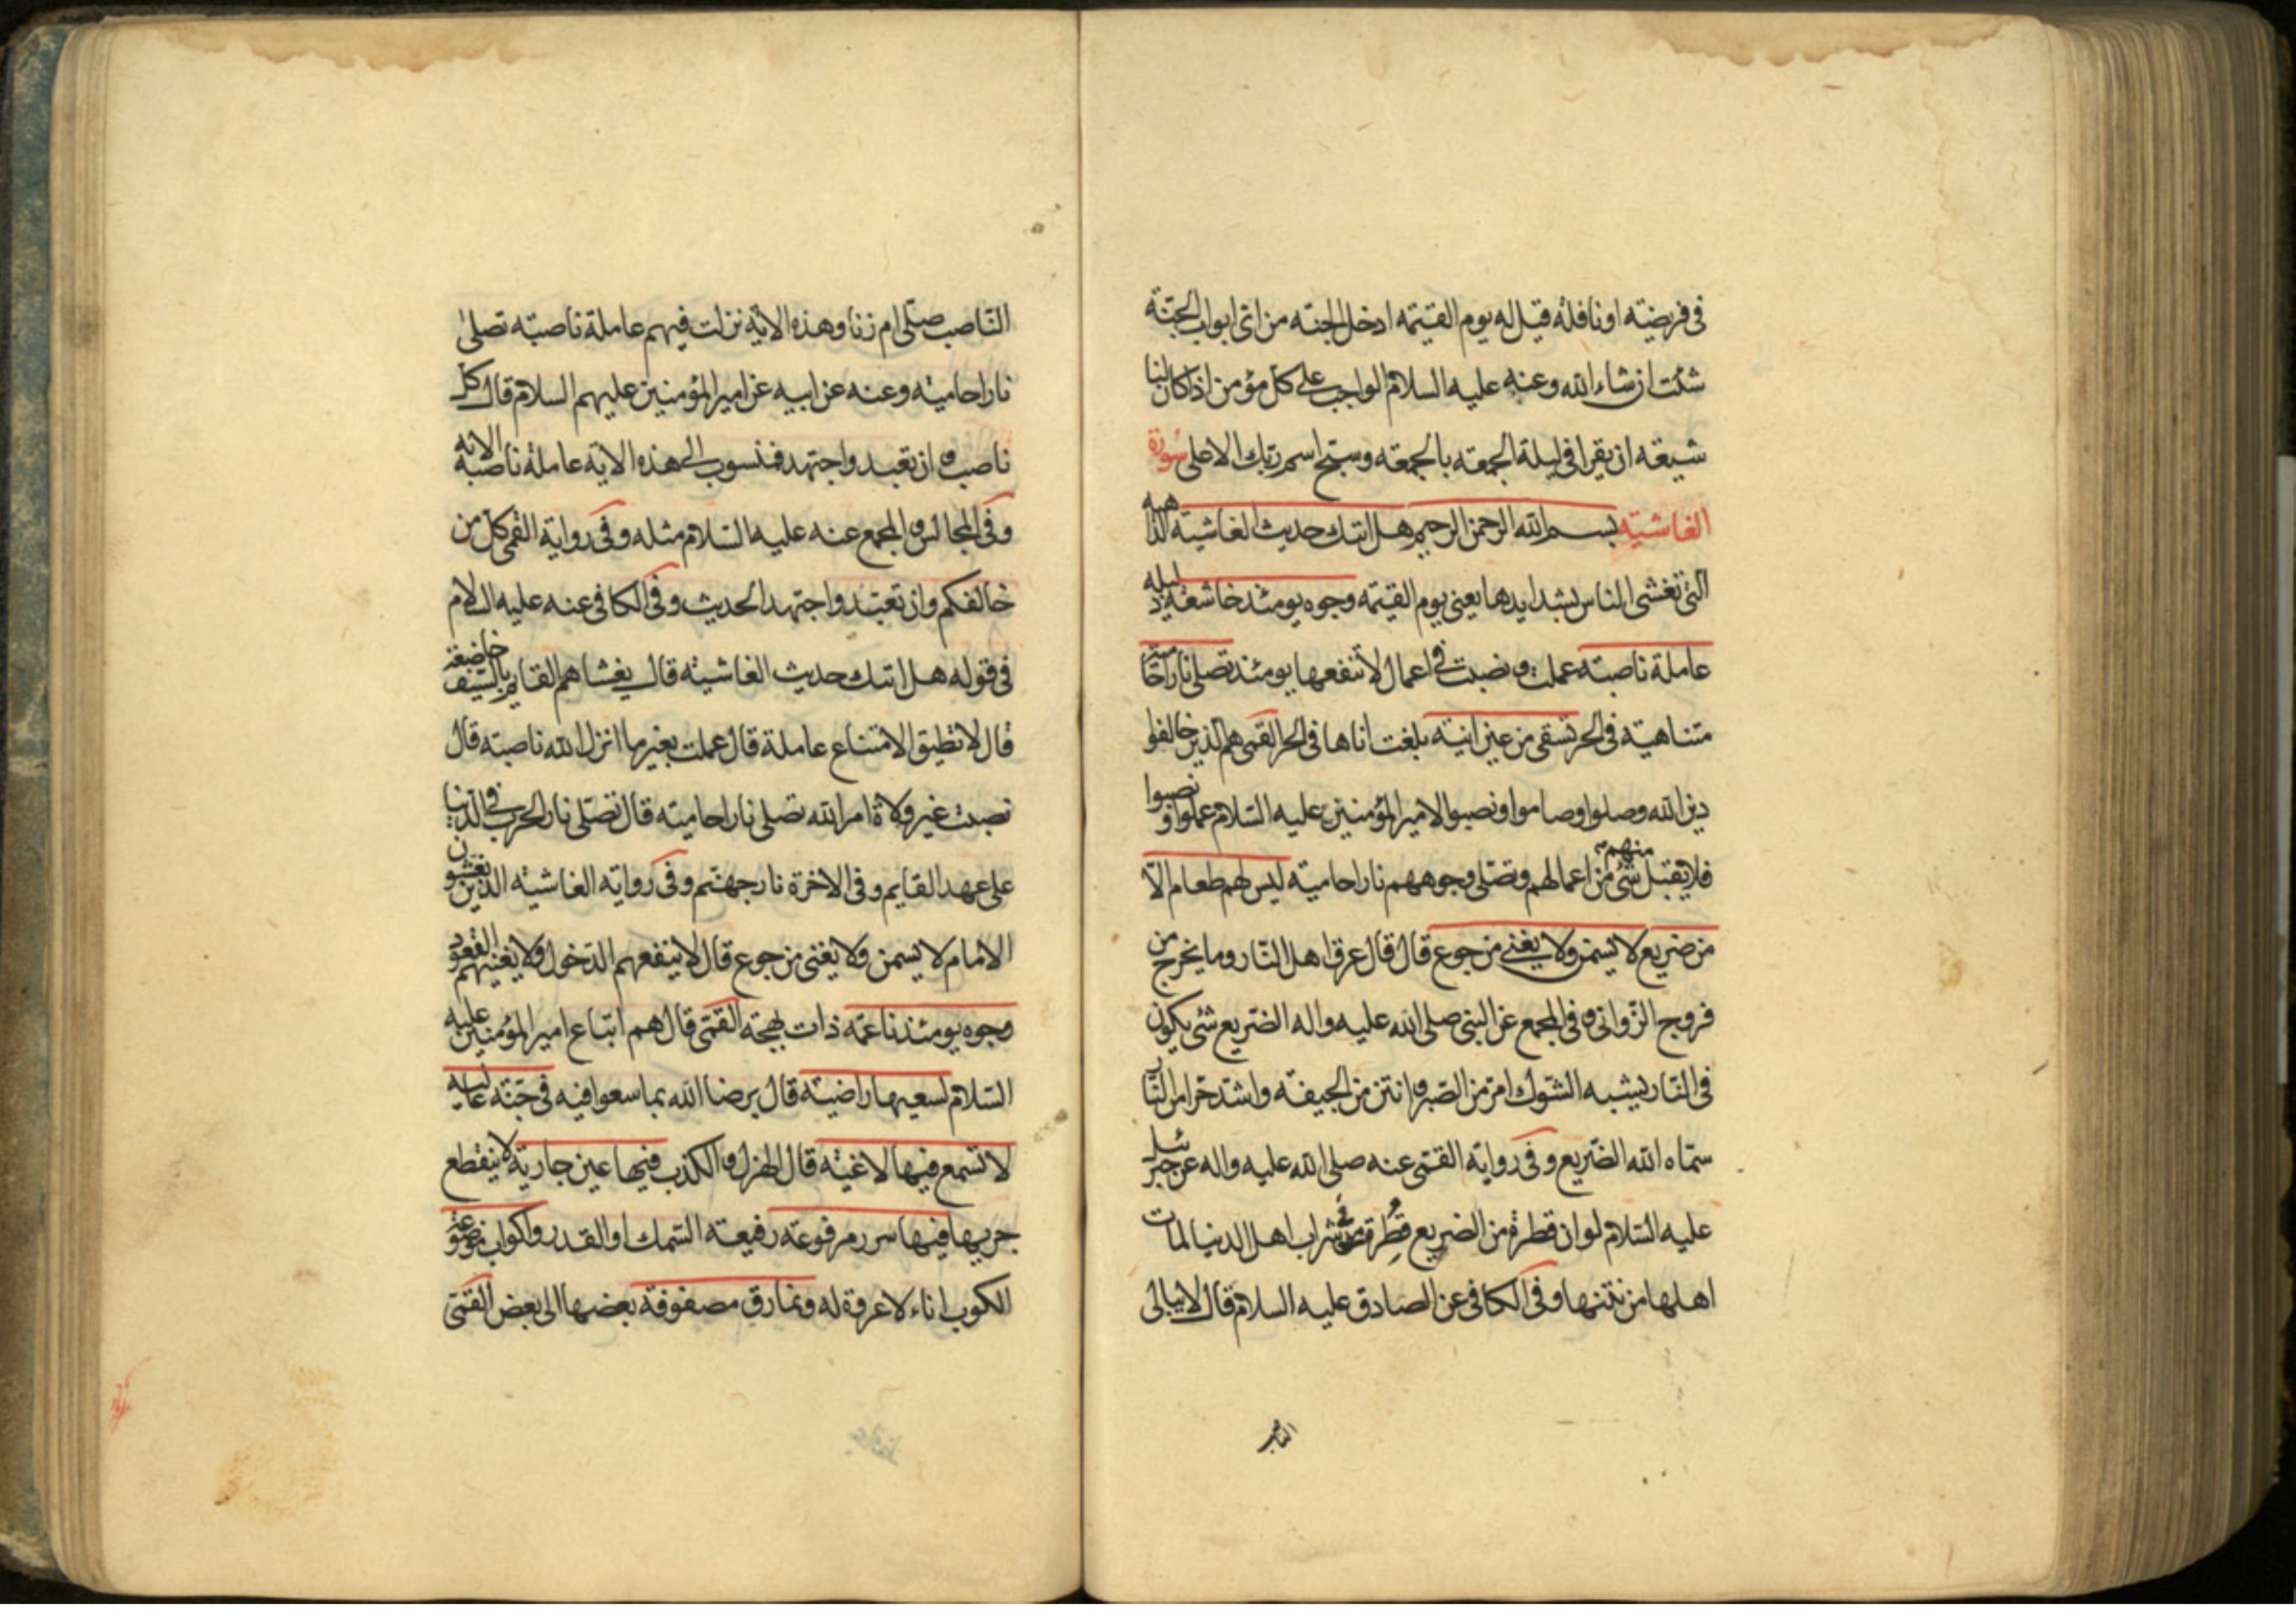 فى فريضته او نافله قيل له يوم القيمه ادخل الجنه من اى ابواب الجنة
شئت ان شاء الله وعنه عليه السلام الواجب على كل مؤمن اذا كان لنا
شيعة ان يقرا فى ليلة الجمعه بالجمعه وسبح اسم ربك الاعلى سورة
الغاشيته بسم الله الرحمن الرحيم هل اتيك حديث الغاشية الداهيه
التى تغشى الناس بشدايدها يعنى يوم القيمه وجوه يومئذ خاشعة ذليله
عاملة ناصبته عملت ونصبت فى اعمال لا تنفعها يومئذ تصلى نارا حاميته
متناهية فى الحر تسقى من عين انية بلغت اناها فى الحر القمى هم الذين خالفوا
دين الله وصلوا وصاموا ونصبوا لامير المؤمنين عليه السلام عملوا ونصبوا
فلا يقبل منهم شئ من اعمالهم وتصلى وجوههم نارا حامية ليس لهم طعام الا
من ضريع لا يسمن ولا يغنى من جوع قال قال عرق اهل النار وما يخرج من
فروج الزوانى وفى المجمع عن النبى صلى الله عليه واله الضريع شئ يكون
فى النار يشبه الشوك امر من الصبر وانتن من الجيفه واشد حرا من النار
سماه الله الضريع وفى رواية القمى عنه صلى الله عليه واله عن جبرئيل
عليه السلام لو ان قطرة من الضريع قطرت فى شراب اهل الدنيا لمات
اهلها من نتنها وفى الكافى عن الصادق عليه السلام قال لا يبالى
الناصب
الناصب صلى ام زنا وهذه الاية نزلت فيهم عاملة ناصبته تصلى
نارا حامية وعنه عن ابيه عن امير المؤمنين عليهم السلام قال كل
ناصب وان تعبد واجتهد فمنسوب الى هذه الاية عاملة ناصبة الاية
وفى المجالس والمجمع عنه عليه السلام مثله وفى رواية القمى كل من
خالفكم وان تعبد واجتهد الحديث وفى الكافى عنه عليه السلام
فى قوله هل اتيك حديث الغاشيته قال يغشاهم القايم بالسيف خاضعة
قال لا تطيق الامتناع عاملة قال عملت بغير ما انزل الله ناصبته قال
نصبت غير ولاة امر الله تصلى نارا حاميته قال تصلى نار الحرب فى الدنيا
على عهد القايم وفى الاخرة نار جهنم وفى روايته الغاشيته الذين يغشون
الامام لا يسمن ولا يغنى من جوع قال لا ينفعهم الدخول ولا يغنيهم القعود
وجوه يومئذ ناعمه ذات بهجة القمى قال هم اتباع امير المؤمنين عليه
السلام لسعيها راضيته قال يرضا الله بما سعوا فيه فى جنة عاليه
لا تسمع فيها لاغيته قال الهزل والكذب فيها عين جارية لا ينقطع
جريها فيها سرر مرفوعته رفيعته السمك او القدر واكواب موضوعة
الكوب اناء لا عروة له ونمارق مصفوفة بعضها الى بعض القمى